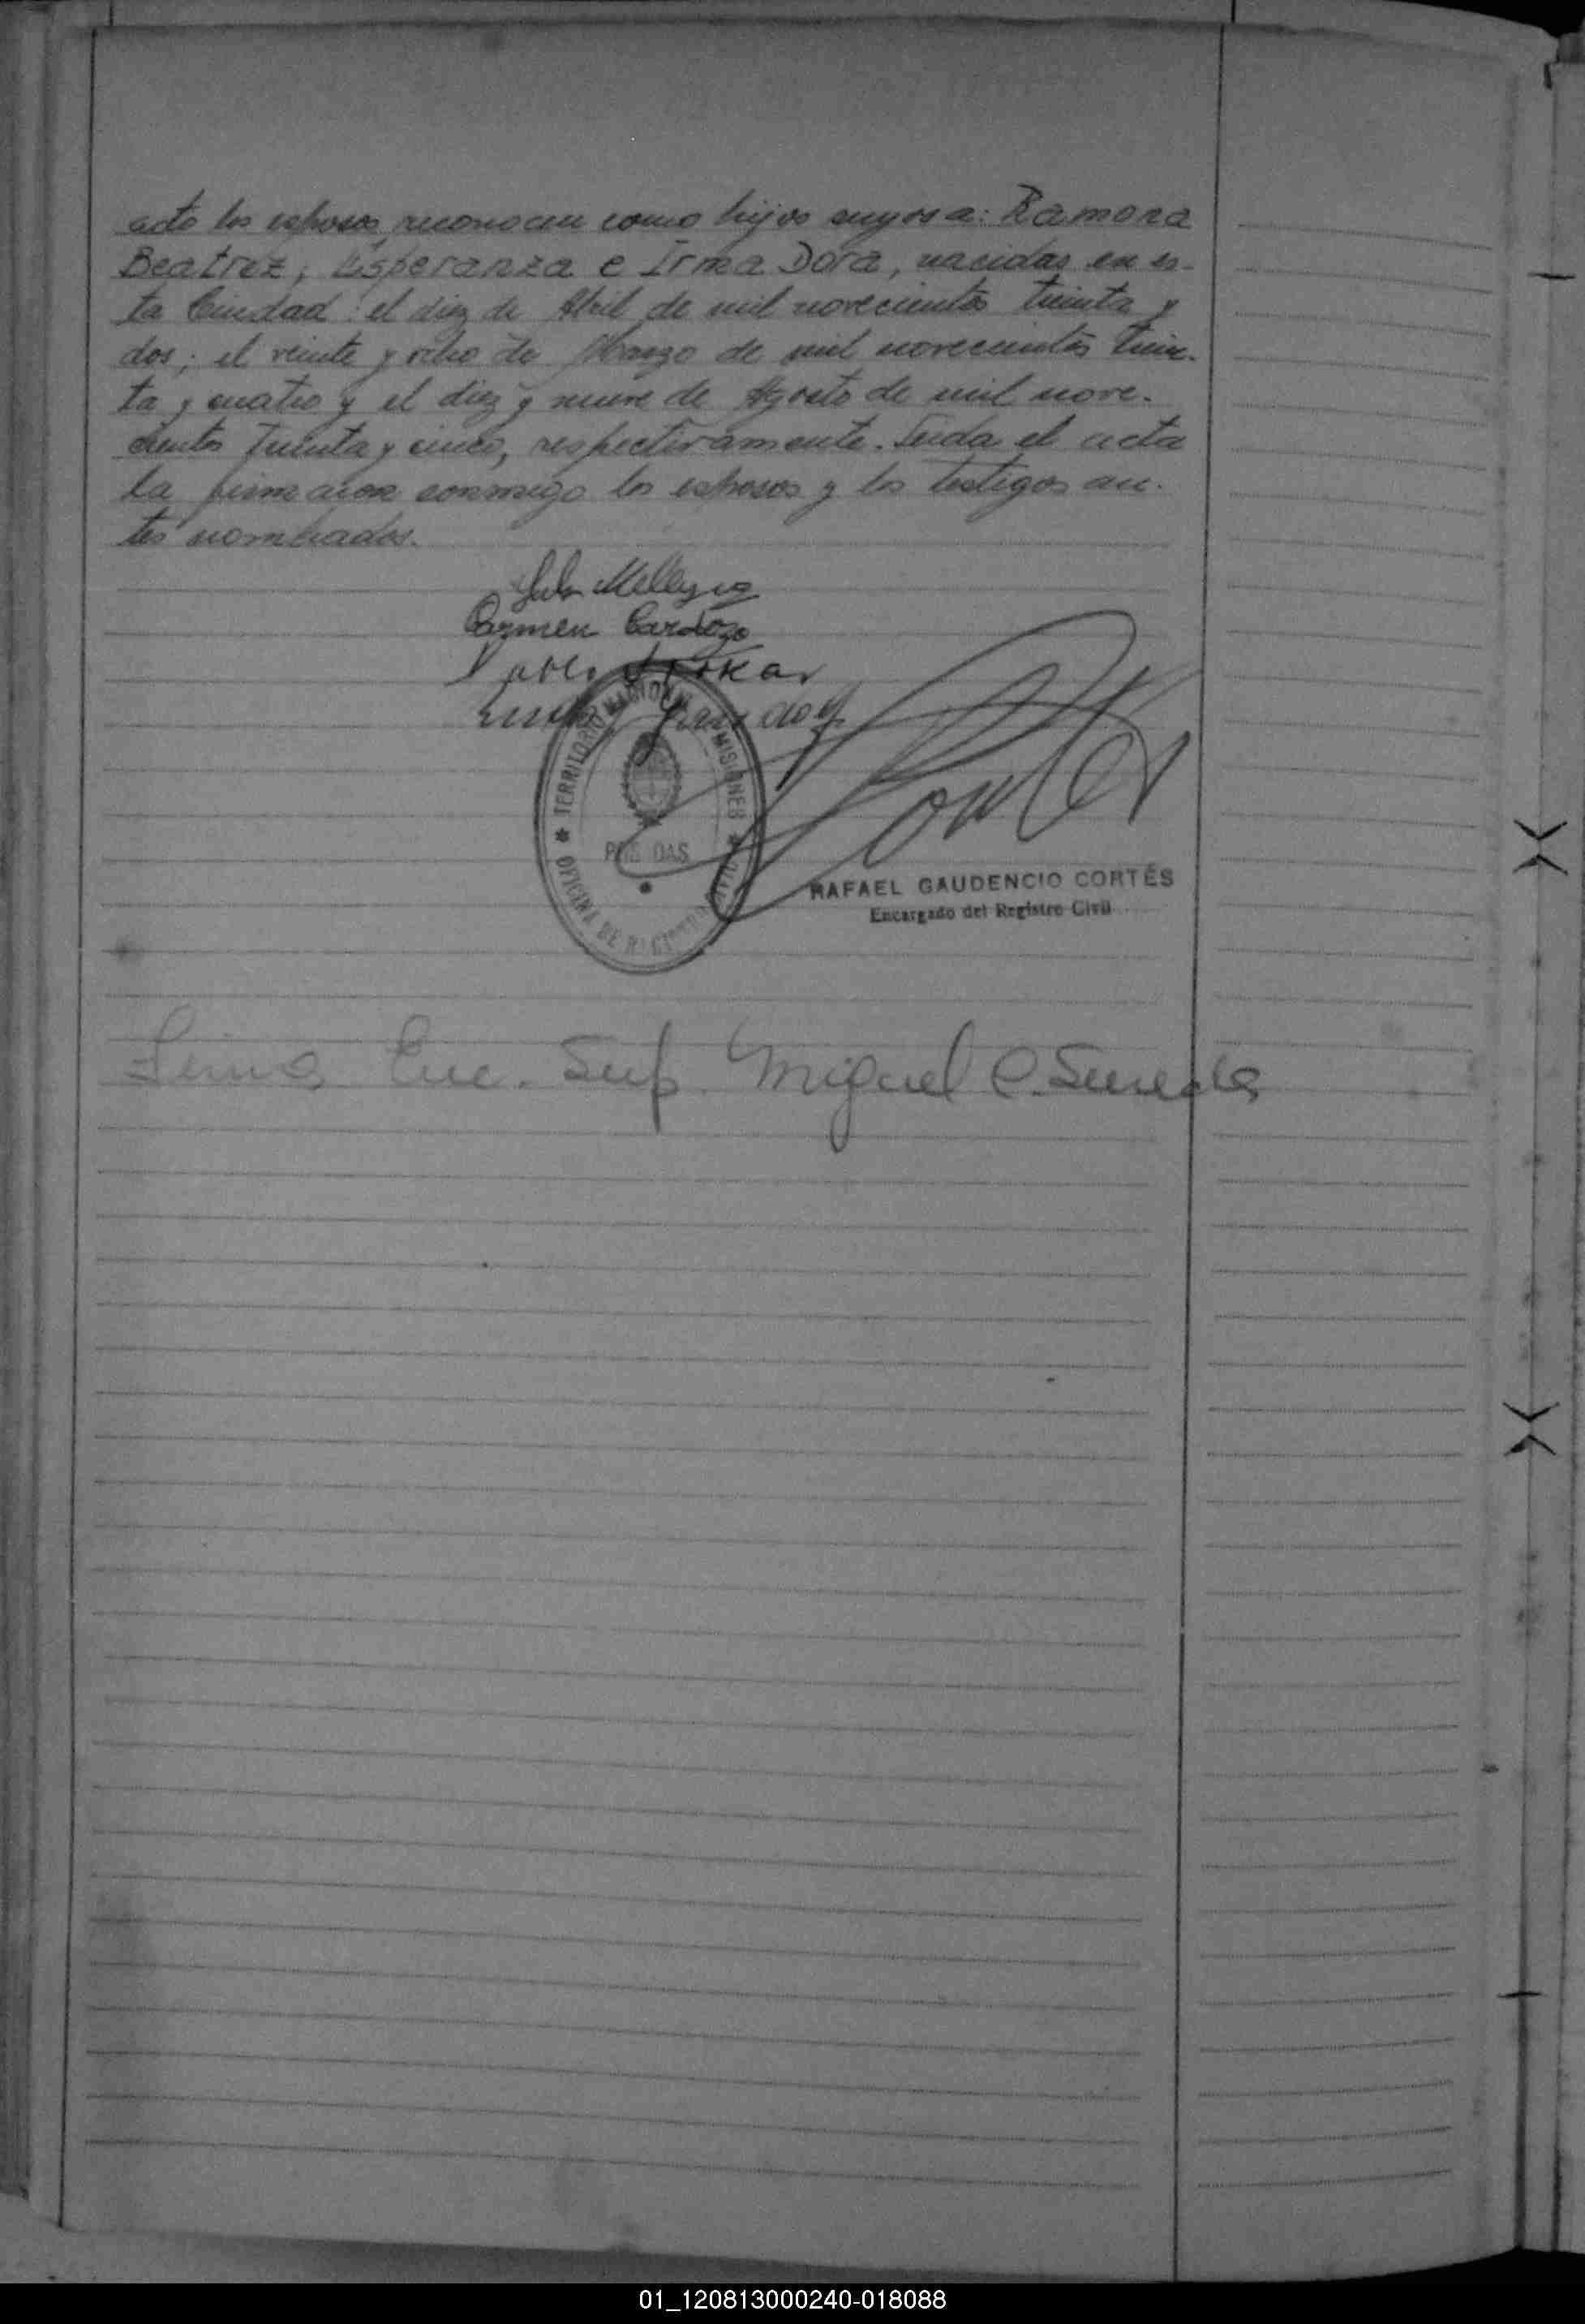 acto los esposos reconocen como hijos suyos a: Ramona
Beatriz; Esperanza e Irma Dora, nacidas en es-
ta Ciudad: el diez de Abril de mil novecientos treinta y
dos; el veinte y ocho de Marzo de mil novecientos trein-
ta y cuatro y el diez y nueve de Agosto de mil nove-
cientos treinta y cinco, respectivamente. Leida el acta
la firmaron conmigo los esposos y los testigos an-
tes nombrados.
Carmen Cardozo
Cortés
TERRITORIO NACIONAL MISIONES
POSADAS
OFICINA DE REGISTRO CIVIL
RAFAEL GAUDENCIO CORTÉS
Encargado del Registro Civil
Enc. Sup. Miguel C.
01_120813000240-018088